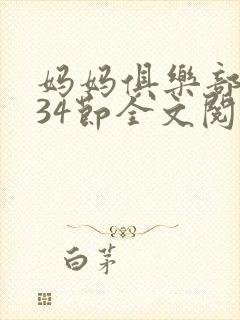 妈妈俱樂部
34節全文閱
白茅